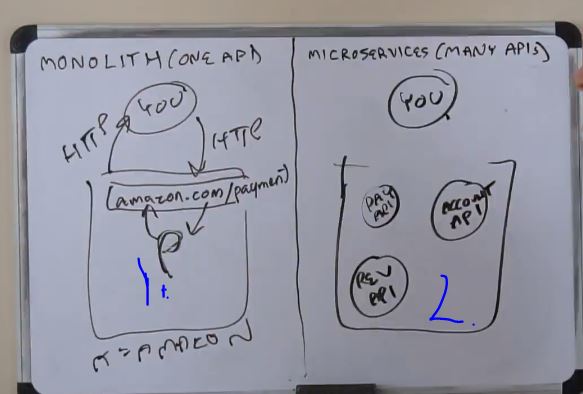 MONOLITH (ONE API)
YOU
HTTP
HTTP
(amazon.com/payment)
1.
= AMAZON
MICROSERVICES (MANY APIs)
YOU
PAY
API
ACCOUNT
API
REV
API
2.